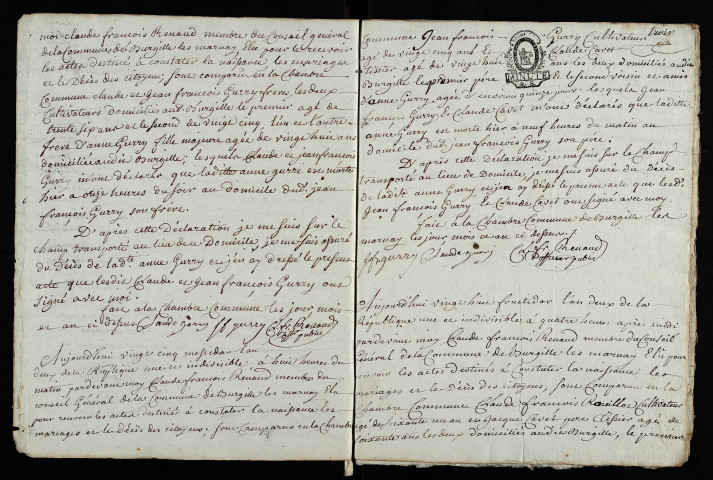 moi claude francois Renaud membre du Conseil général
de la Commune de Burgille les marnay Elu pour le recevoir
les actes destiné a constater la naissance les mariages
et le Décès des citoyens, sont comparu en la Chambre
Commune claude et Jean francois Gurry freres, les deux
Cultivateurs domiciliés audt Burgille le premier agé de
trente six ans et le second de vingt cinq l'un et l'autre
frere d'anne Gurry fille majeure agée de vingt huit ans
domiciliée audit Burgille; lesquels Claude et jean francois
Gurry m'ont déclarer que ladite anne gurre est morte
hier a onze heures du soir au domicile dudt jean
françois Gurry son frère.
D'après cette Déclaration je me suis sur le
champ transporté au lieu de ce Domicile, je me suis assuré
du Décès de ladte anne Gurry et j'en ay drepsé le present
acte que lesdits Claude et Jean francois Gurry ont
signé avec moi.
fait a la Chambre Commune les jour, mois
et an ci dessus Claude Gurry jf gurry C. fr. Renaud
officier public
Aujourdhui vingt cinq messidor l'an
deux de la Republique une et indivisible a huit heures du
matin pardevant moy Claude francois Renaud membre du
conseil Général de la Commune de Burgille les marnay Elu
pour recevoir les actes destiné a constater la naissance les
mariages et le décès des citoyens, sont comparus en la Chambre
trois
Commune Jean francois Gurry Cultivateur
agé de vingt cinq ans Et Claude Cavet
tissier agé de vingt huit ans les deux domiciliés audit
Burgille le premier père et le second voisin et amis
d'anne Gurry agée d'environ quinze jours lesquels Jean
françois Gurry Et Claude Cavet m'ont déclarés que ladite
anne Gurry est morte hier a neuf heures du matin au
domicile dudt jean francois Gurry son père.
D'après cette déclaration, je me suis sur le Champ
transporté au lieu de Domicile, je me suis assuré du Décès
de ladite anne Gurry et j'en ay drepsé le present acte que lesdts
Jean françois Gurry Et Claude Cavet ont signé avec moy.
fait a la Chambre Commune de Burgille les
marnay les jour, mois et an ci dessus /
jf gurry C. fr. Renaud
officier public
Aujourdhui vingt huit fructidor l'an deux de la
République une et indivisible, à quatre heures apres midi
pardevant moy Claude francois Renaud membre du Conseil
Général de la Commune de Burgille les marnay Elu pour
recevoir les actes destinés a Constater la naissance les
mariages et le Décès des Citoyens, sont Comparus en la
Chambre Commune Claude francois Cultivateur
agé de soixante un an et Jacque Cavet pere Tissier agé de
soixante ans les deux domiciliés audit Burgille, le premier